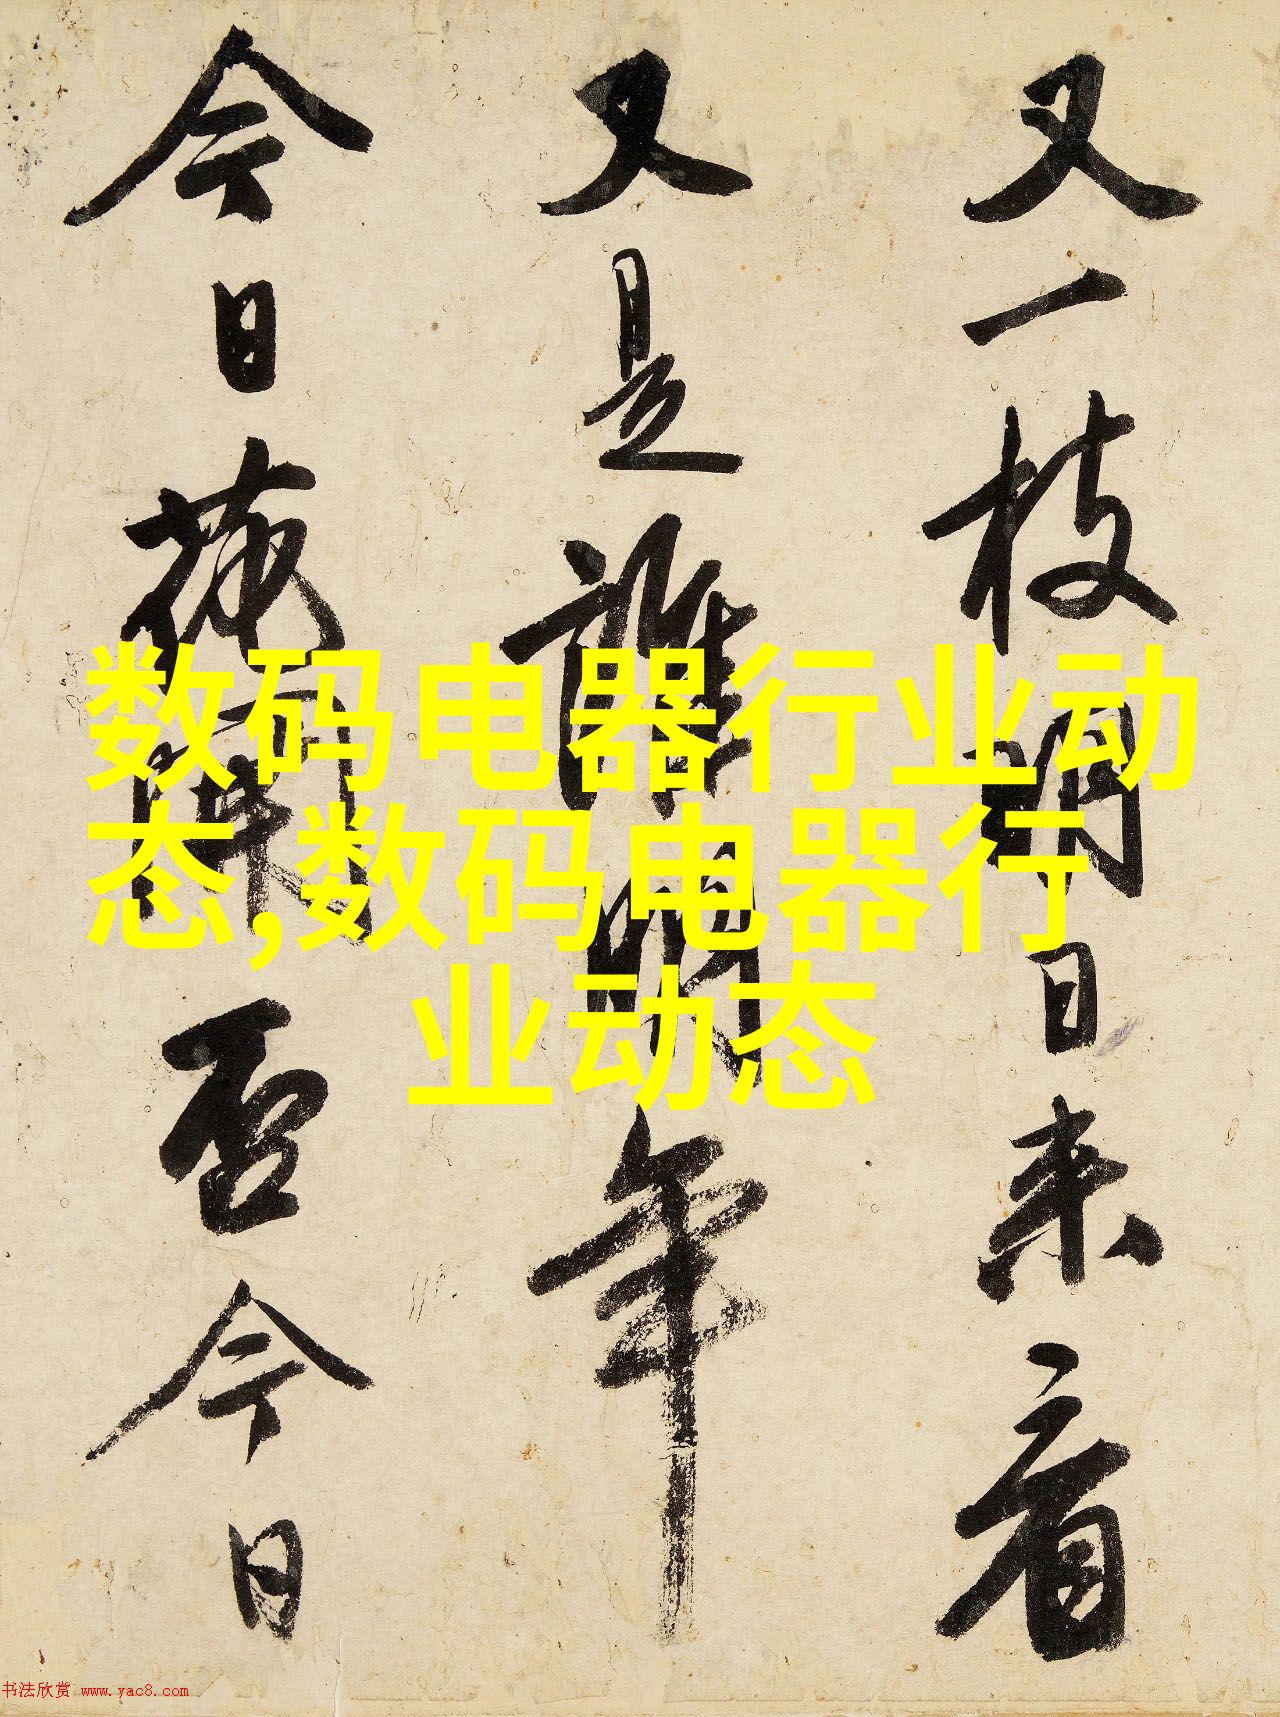 又一枝明日来看
又是誰明年
今日開否今日
数码电器行业动
态,数码电器行
业动态
书法欣赏 www.yac8.com